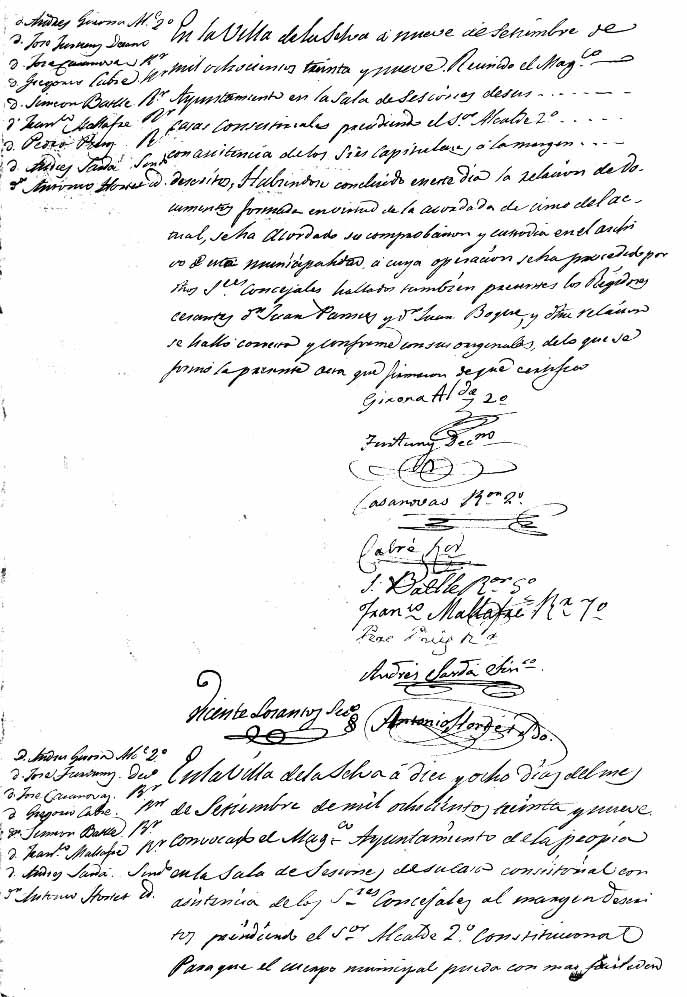 D. Andres Girona Al.e 2º
D. Jose Fortuny Decano
D. Jose Casanovas Rr
D. Gregorio Cabré Rr
D. Simeon Batlle Rr
D. Franco Mallafré Rr
D. Pedro Puig R
D. Andres Sardá Sind
Dn Antonio Hortet id.
En la Villa de la Selva á nueve de Setiembre de
mil ochocientos treinta y nueve. Reunido el Magco
Ayuntamiento en la Sala de Sesiones de sus
casas Consistoriales presidiendo el Sor Alcalde 2º
con asistencia de los Sres Capitulares, á la margen
descritos, Habiendose concluido en este dia la relacion de Do-
cumentos formada en virtud de lo acordado de cinco del ac-
tual, se ha acordado su comprobacion y custodia en el archi
vo de esta municipalidad, á cuya operacion se ha procedido por
dhos Sres Concejales hallados tambien presentes los Regidores
cesantes Dn Juan y Dn Juan Boqué, y dha relacion
se halló correcta y conforme con sus originales, de lo que se
formó la presente acta que firmaron de que certifico
Girona Alde 2º
Fortuny Decno
Casanovas Ror 2º
Cabré Ror
S. Batlle Ror 5º
Franco Mallafré Rr 7º
Pere Puig Rr
Andrés Sardá Sinco
Vicente Lorantos Sec.º
Antonio Hortet Ido.
D. Andres Girona Al.e 2º
D. Jose Fortuny Decº
D. Jose Casanovas Rr
D. Gregorio Cabré Rr
Dn Simeon Batlle Rr
D. Franco Mallafré Rr
D. Andres Sardá Sindo
Dn Antonio Hortet id.
En la Villa de la Selva á diez y ocho dias del mes
de Setiembre de mil ochocientos treinta y nueve.
convocado el Magco Ayuntamiento de la propia
en la Sala de Sesiones de su casa consistorial con
asistencia de los Sres Concejales al margen descri
tos presidiendo el Sor Alcalde 2º Constitucional
Para que el cuerpo municipal pueda con mas